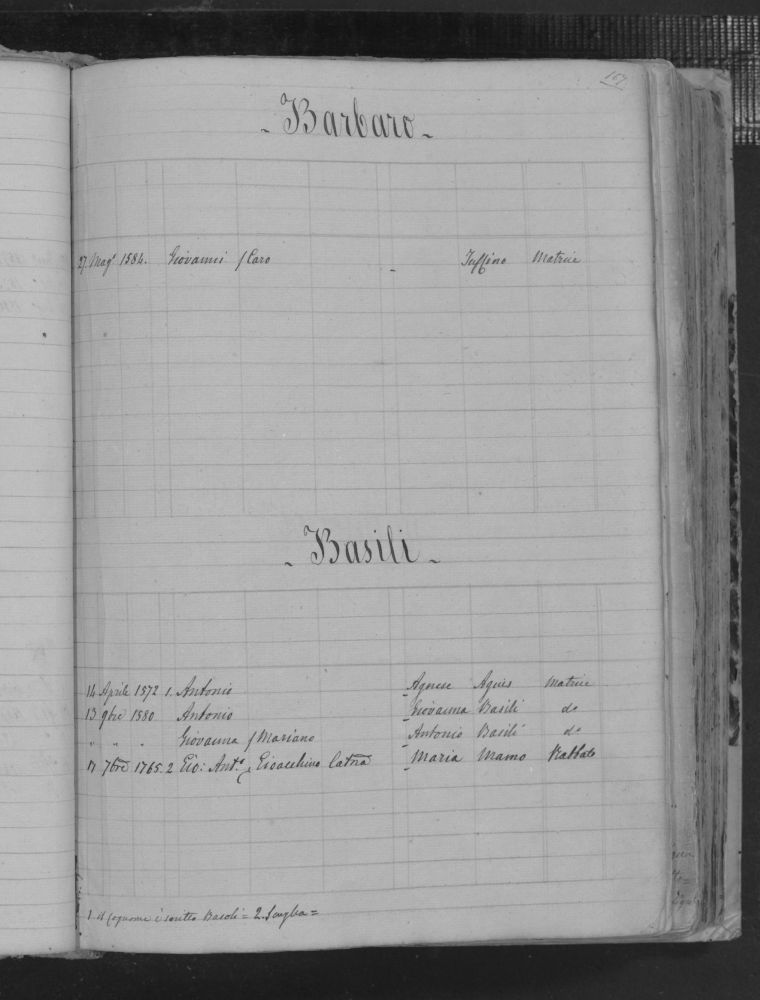 167
- Barbaro -
27. Magº 1584. Giovanni f Caro - Matrice
- Basili -
14 Aprile 1572 1. Antonio Agnese Agius Matrice
13 9bre 1580 Antonio Giovanna Basili do
" " " Giovanna f Mariano Antonio Basili do
17 7bre 1765. 2 Gio: Antº Gioacchino Catna Maria Mamo Rabbato
1. il Cognome è scritto Basoli = 2. Senglea =